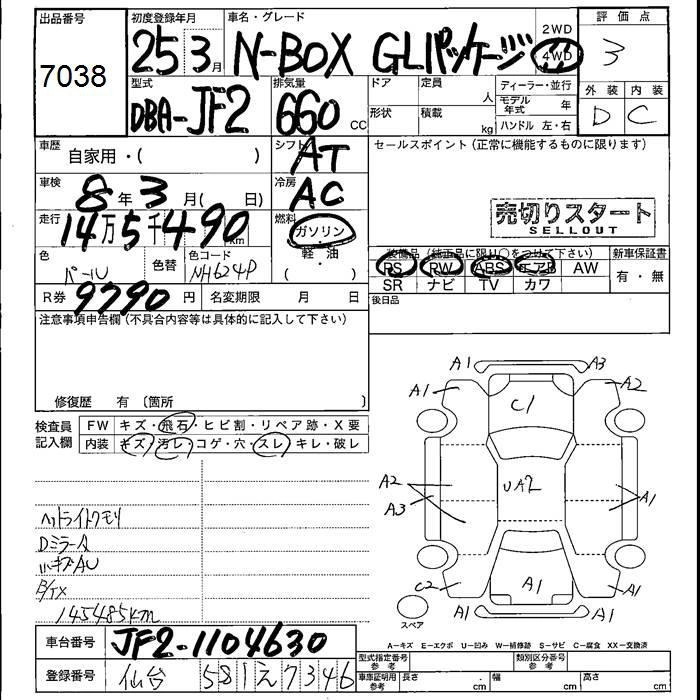 出品番号 初度登録年月 車名・グレード 2WD 4WD 評価点
7038 25 3月 N-BOX GLパッケージ 3
型式 排気量 ドア 定員 人 ディーラー・並行 外装 内装
DBA-JF2 660 CC 形状 積載 kg モデル年式 年 D C
ハンドル 左・右
車歴 自家用・( ) シフト AT セールスポイント(正常に機能するものに限ります)
車検 8年3月( 日) 冷房 AC
売切りスタート
SELLOUT
走行 14万5千490km 燃料 ガソリン
軽・油
( )
色 パール 色替 色コード NH624P 装備品(純正品に限り○をつけて下さい) 新車保証書
PS PW ABS エアB AW 有・無
SR ナビ TV カワ
R券 9790円 名変期限 月 日 後日品
注意事項申告欄(不具合内容等は具体的に記入して下さい)
修復歴 有〔箇所 〕
検査員記入欄 FW キズ・飛石・ヒビ割・リペア跡・X要
内装 キズ・汚レ・コゲ・穴・スレ・キレ・破レ
A1 A3
A1 A2
C1
A2 UA2
A3 A1
C2 A1 A1
A1 A1
スペア
ヘッドライトクモリ
DミラーA
小キズAU
145485km
A-キズ E-エクボ U-凹み W-補修跡 S-サビ C-腐食 XX-交換済
車台番号 JF2-1104630 型式指定番号 参考 類別区分番号 参考
登録番号 仙台 581 え 7346 車庫証明用 参考 長さ . cm 幅 cm 高さ cm